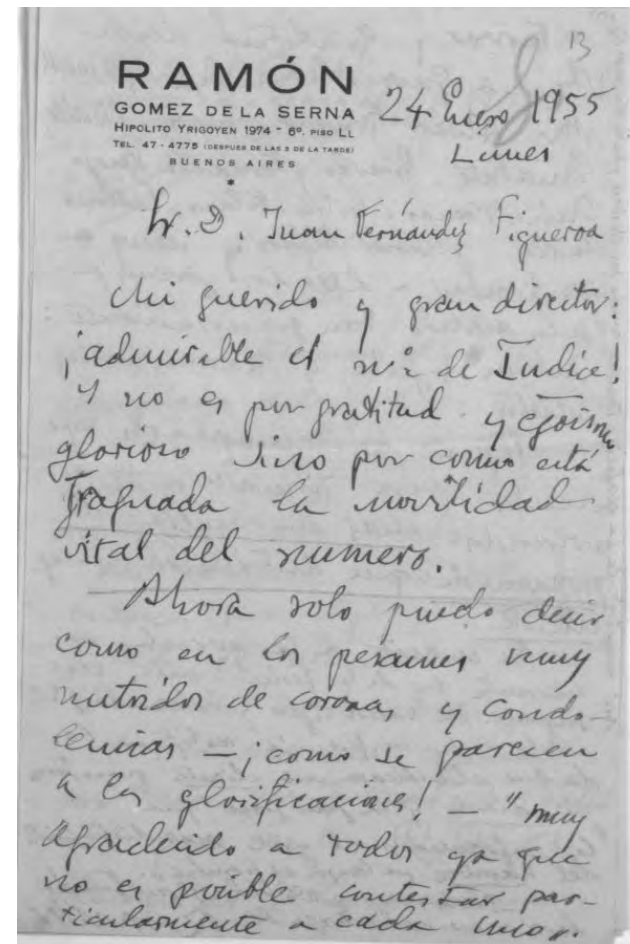 13
RAMÓN
GOMEZ DE LA SERNA
HIPOLITO YRIGOYEN 1974 - 6º. PISO LL
TEL. 47 - 4775 (DESPUES DE LAS 5 DE LA TARDE)
BUENOS AIRES
*
24 Enero 1955
Lunes
Sr. D. Juan Fernández Figueroa
Mi querido y gran director:
¡admirable el nº de Indice!
y no es por gratitud y egoismo
glorioso sino por como está
fraguada la movilidad
vital del numero.
Ahora solo puedo decir
como en los pesames muy
nutridos de coronas y condo-
lencias — ¡como se parecen
a las glorificaciones! — "muy
agradecido a todos ya que
no es posible contestar par-
ticularmente a cada uno".